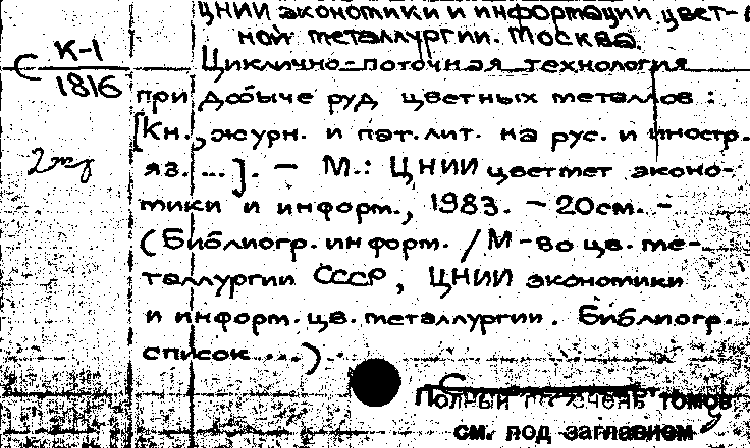 ЦНИИ экономики и информации цвет-
ной металлургии. Москва.
С К-1
1816
Циклично-поточная технология
при добыче руд цветных металлов :
[Кн., журн. и пат. лит. на рус. и иностр.
яз. ...]. - М.: ЦНИИ цветмет эконо-
мики и информ., 1983. - 20см. -
(Библиогр. информ. / М-во цв. ме-
таллургии СССР, ЦНИИ экономики
и информ. цв. металлургии. Библиогр.
список ...)
Полный перечень томов
см. под заглавием